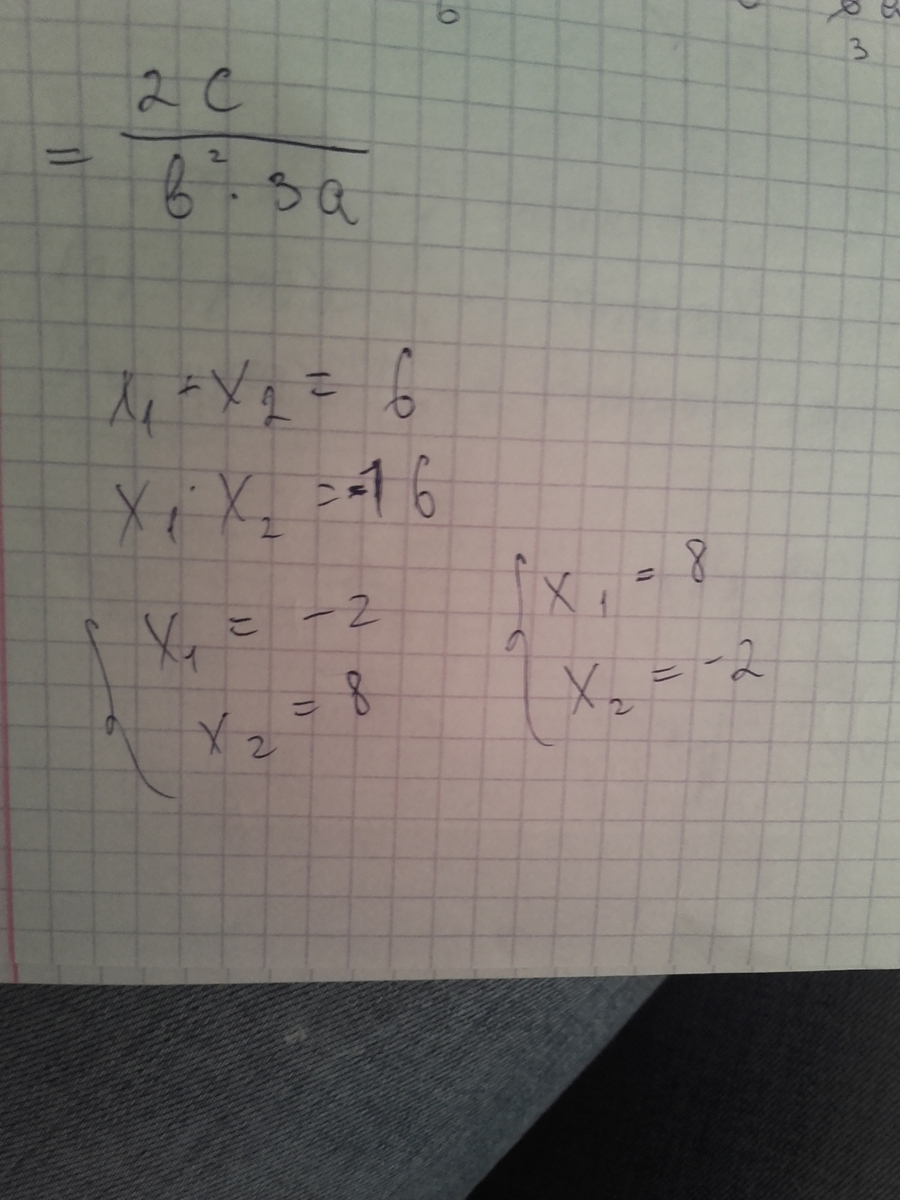 = 2c / b² · 3a
x₁ + x₂ = 6
x₁ · x₂ = -16
{ x₁ = -2
x₂ = 8
{ x₁ = 8
x₂ = -2